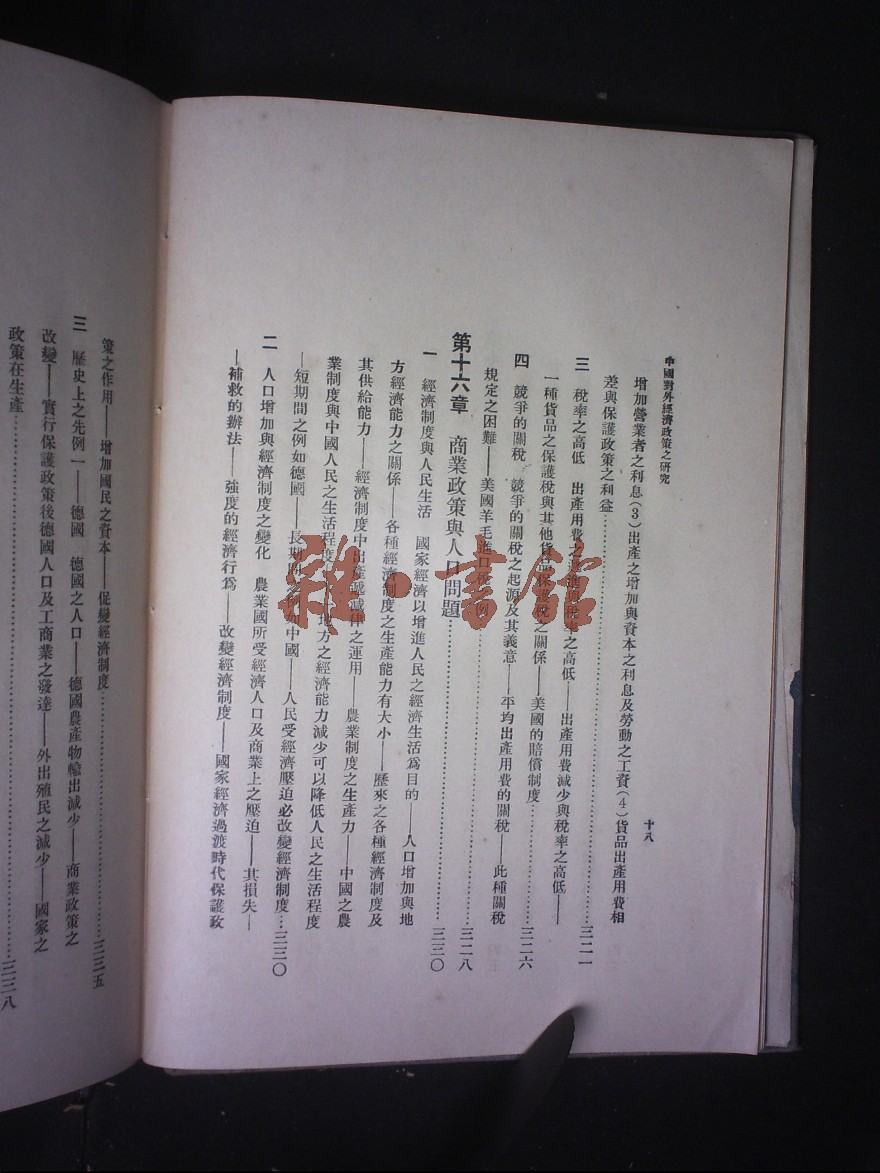 中國對外經濟政策之研究
十八
增加營業者之利息(3)出產之增加與資本之利息及勞動之工資(4)貨品出產用費相
差與保護政策之利益……三二一
三 稅率之高低 出產用費之 稅率之高低——出產用費減少與稅率之高低——
一種貨品之保護稅與其他貨品保護稅之關係——美國的賠償制度……三二六
四 競爭的關稅 競爭的關稅之起源及其義意——平均出產用費的關稅——此種關稅
規定之困難——美國羊毛進口稅之例……三二八
第十六章 商業政策與人口問題……三三〇
一 經濟制度與人民生活 國家經濟以增進人民之經濟生活爲目的——人口增加與地
方經濟能力之關係——各種經濟制度之生產能力有大小——歷來之各種經濟制度及
其供給能力——經濟制度中出產遞減律之運用——農業制度之生產力——中國之農
業制度與中國人民之生活程度 地方之經濟能力減少可以降低人民之生活程度
—短期間之例如德國——長期間之例如中國——人民受經濟壓迫必改變經濟制度…三三〇
二 人口增加與經濟制度之變化 農業國所受經濟人口及商業上之壓迫——其損失—
—補救的辦法——強度的經濟行爲——改變經濟制度——國家經濟過渡時代保護政
策之作用——增加國民之資本——促變經濟制度……三三五
三 歷史上之先例一——德國 德國之人口——德國農產物輸出減少——商業政策之
改變——實行保護政策後德國人口及工商業之發達——外出殖民之減少——國家之
政策在生產……三三八
雜·書館